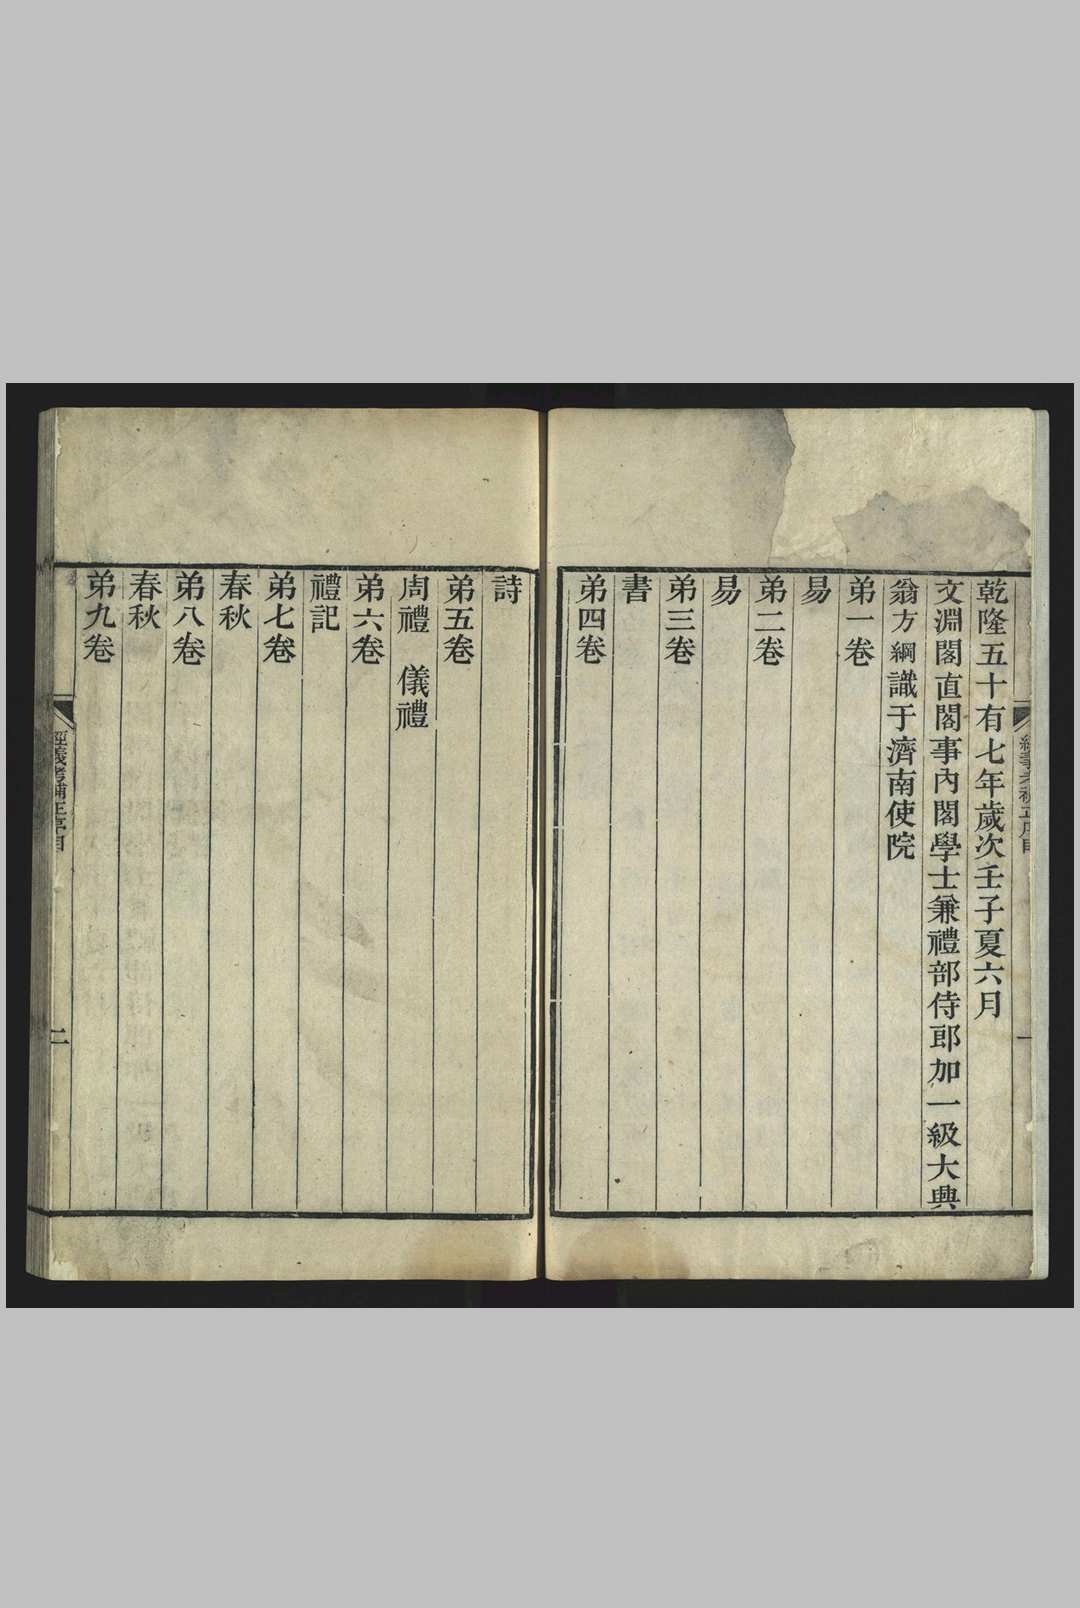 乾隆五十有七年歲次壬子夏六月
文淵閣直閣事內閣學士兼禮部侍郎加一級大興
翁方綱識于濟南使院
弟一卷
易
弟二卷
易
弟三卷
書
弟四卷
詩
弟五卷
周禮　儀禮
弟六卷
禮記
弟七卷
春秋
弟八卷
春秋
弟九卷
經義考補正序目
二